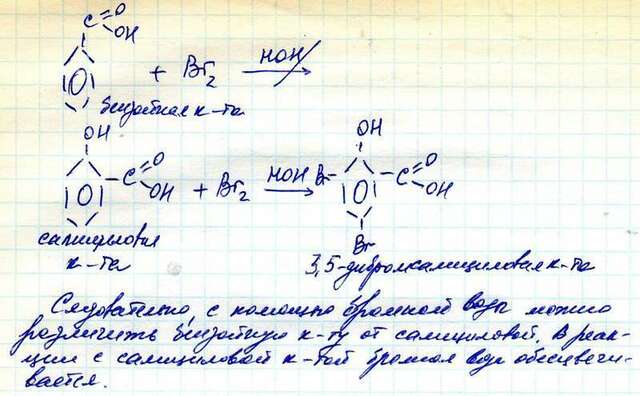 C O
OH
+ Br2 HOH
бензойная к-та
OH
C O
OH + Br2 HOH
салициловая
к-та
OH
Br C O
OH
Br
3,5-дибромсалициловая к-та
Следовательно, с помощью бромной воды можно
различить бензойную к-ту от салициловой. В реак-
ции с салициловой к-той бромная вода обесцвечи-
вается.